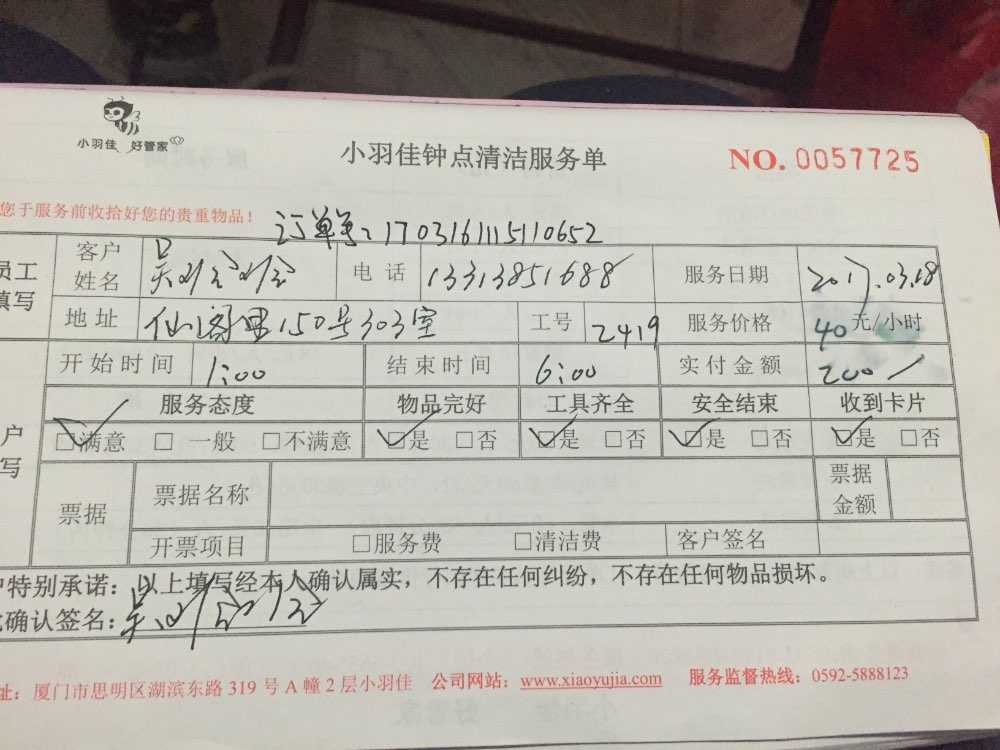 小羽佳 好管家
小羽佳钟点清洁服务单
NO. 0057725
您于服务前收拾好您的贵重物品！
订单号：1703161115110652
员工填写
客户姓名 吴 电话 13313851688 服务日期 2017.03.18
地址 仙阁里150号303室 工号 2419 服务价格 40元/小时
开始时间 1:00 结束时间 6:00 实付金额 200
服务态度 物品完好 工具齐全 安全结束 收到卡片
户写
□满意 □一般 □不满意 □是 □否 □是 □否 □是 □否 □是 □否
票据 票据名称 票据金额
开票项目 □服务费 □清洁费 客户签名
户特别承诺：以上填写经本人确认属实，不存在任何纠纷，不存在任何物品损坏。
确认签名：吴
址：厦门市思明区湖滨东路 319 号 A 幢 2 层小羽佳 公司网站：www.xiaoyujia.com 服务监督热线：0592-5888123